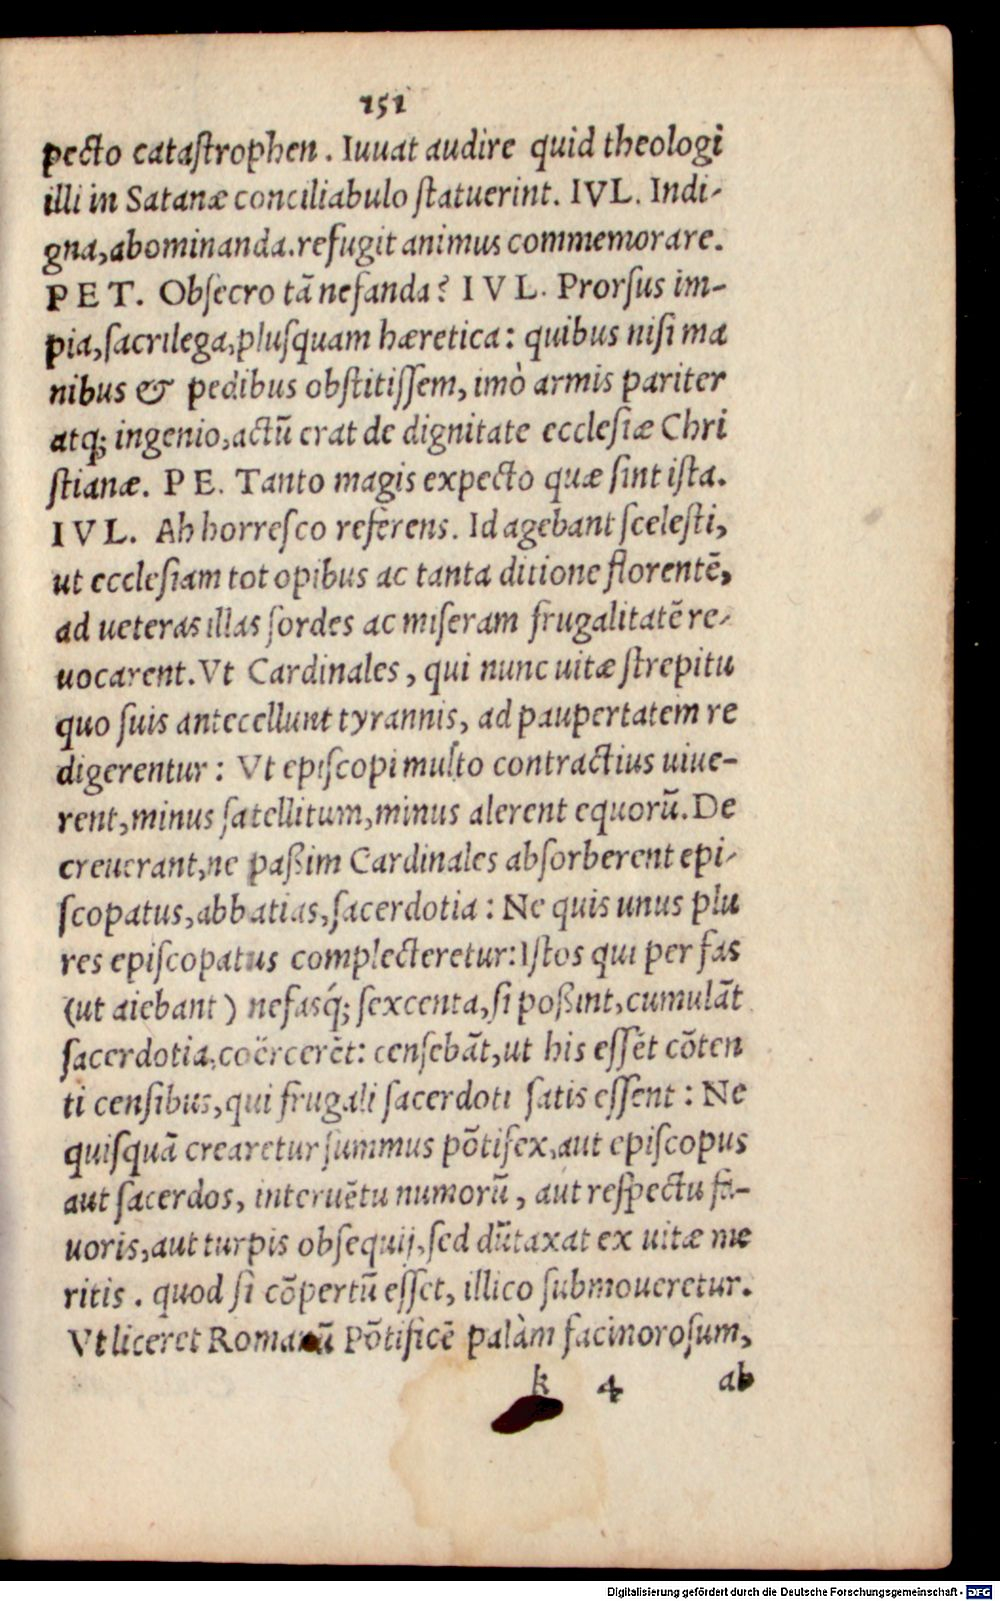 151
pecto catastrophen. Iuuat audire quid theologi
illi in Satanæ conciliabulo statuerint. IVL. Indi-
gna, abominanda. refugit animus commemorare.
PET. Obsecro tā nefanda? IVL. Prorsus im-
pia, sacrilega, plusquam hæretica: quibus nisi ma
nibus & pedibus obstitissem, imò armis pariter
atq; ingenio, actū erat de dignitate ecclesiæ Chri
stianæ. PE. Tanto magis expecto quæ sint ista.
IVL. Ah horresco referens. Id agebant scelesti,
ut ecclesiam tot opibus ac tanta ditione florentē,
ad ueteras illas sordes ac miseram frugalitatē re-
uocarent. Vt Cardinales, qui nunc uitæ strepitu
quo suis antecellunt tyrannis, ad paupertatem re
digerentur: Vt episcopi multo contractius uiue-
rent, minus satellitum, minus alerent equorū. De
creuerant, ne paßim Cardinales absorberent epi-
scopatus, abbatias, sacerdotia: Ne quis unus plu
res episcopatus complecteretur: Istos qui per fas
(ut aiebant) nefasq́; sexcenta, si poßint, cumulāt
sacerdotia, coërcerēt: censebāt, ut his essēt cōten
ti censibus, qui frugali sacerdoti satis essent: Ne
quisquā crearetur summus pōtifex, aut episcopus
aut sacerdos, interuētu numorū, aut respectu fa-
uoris, aut turpis obsequij, sed dūtaxat ex uitæ me
ritis. quod si cōpertū esset, illico submoueretur.
Vt liceret Romanū Pōtificē palàm facinorosum,
k 4 ab
Digitalisierung gefördert durch die Deutsche Forschungsgemeinschaft - DFG